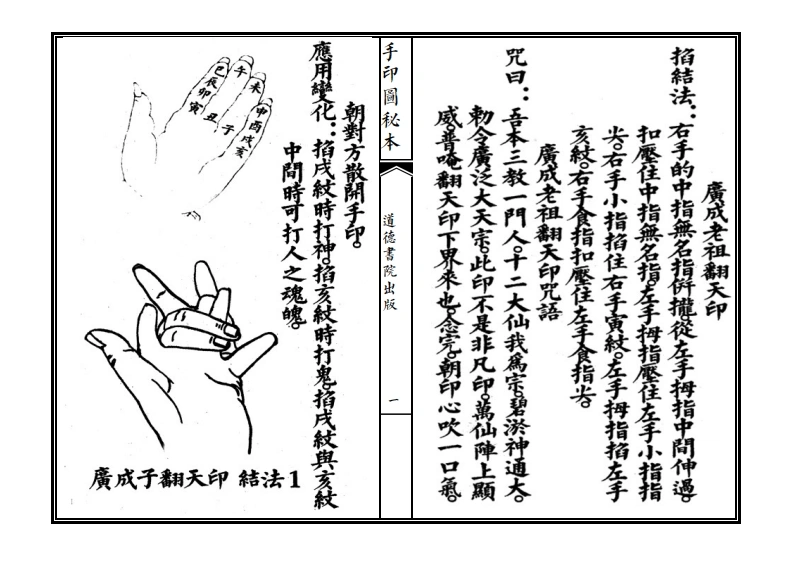 廣成老祖翻天印
掐結法：右手的中指無名指併攏。從左手拇指中間伸過。
扣壓住中指無名指。左手拇指壓住左手小指指
尖。右手小指掐住右手寅紋。左手拇指掐左手
亥紋。右手食指扣壓住左手食指尖。
廣成老祖翻天印咒語
咒曰：吾本三教一門人。十二大仙我為宗。碧淤神通大。
勅令廣泛大天宗。此印不是非凡印。萬仙陣上顯
威。普唵翻天印下界來也。念完。朝印心吹一口氣。
手印圖秘本
道德書院出版
一
朝對方散開手印。
應用變化：掐戌紋時打神。掐亥紋時打鬼。掐戌紋與亥紋
中間時可打人之魂魄。
巳
午
未
申
辰
卯
寅
丑
子
酉
戌
亥
廣成子翻天印 結法1